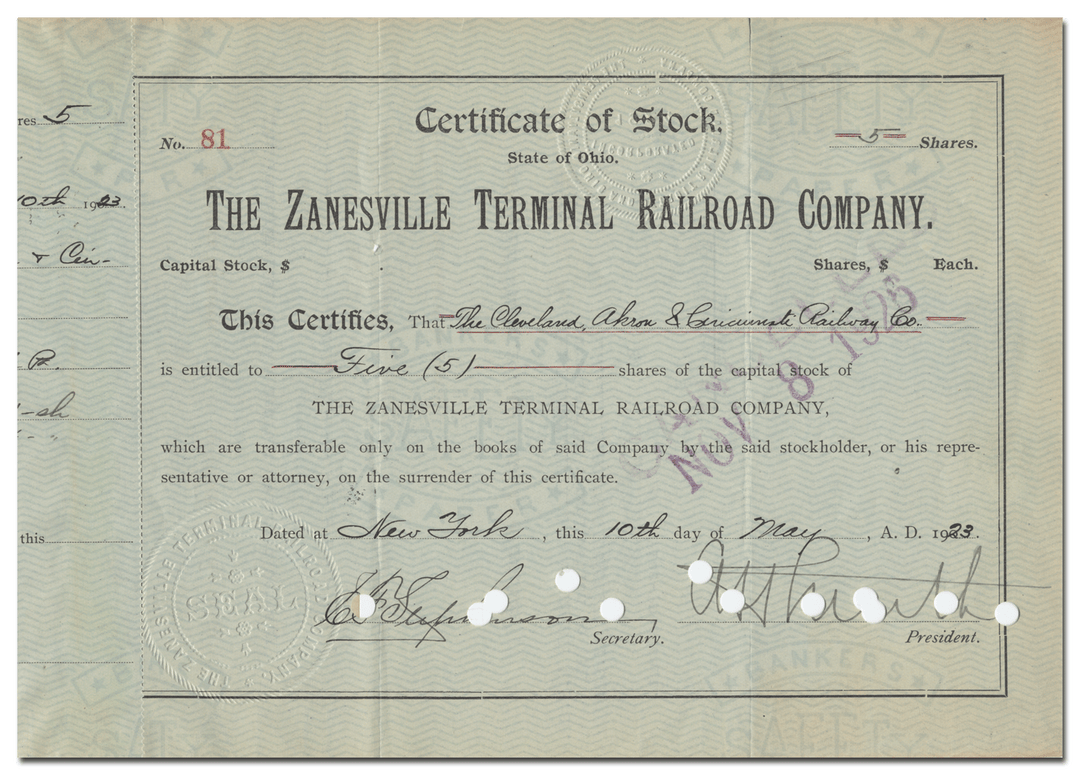 res 5
10th 1923.
& Cin-
R.
-sh
this
No. 81
Certificate of Stock.
5 Shares.
State of Ohio.
THE ZANESVILLE TERMINAL RAILROAD COMPANY.
Capital Stock, $ Shares, $ Each.
This Certifies, That The Cleveland, Akron & Cincinnati Railway Co.
is entitled to Five (5) shares of the capital stock of
THE ZANESVILLE TERMINAL RAILROAD COMPANY,
which are transferable only on the books of said Company by the said stockholder, or his repre-
sentative or attorney, on the surrender of this certificate.
NOV 8 1928
Dated at New York, this 10th day of May, A. D. 1923.
THE ZANESVILLE TERMINAL RAILROAD COMPANY.
SEAL
Secretary. President.
BANKERS
SAFETY
PAPER